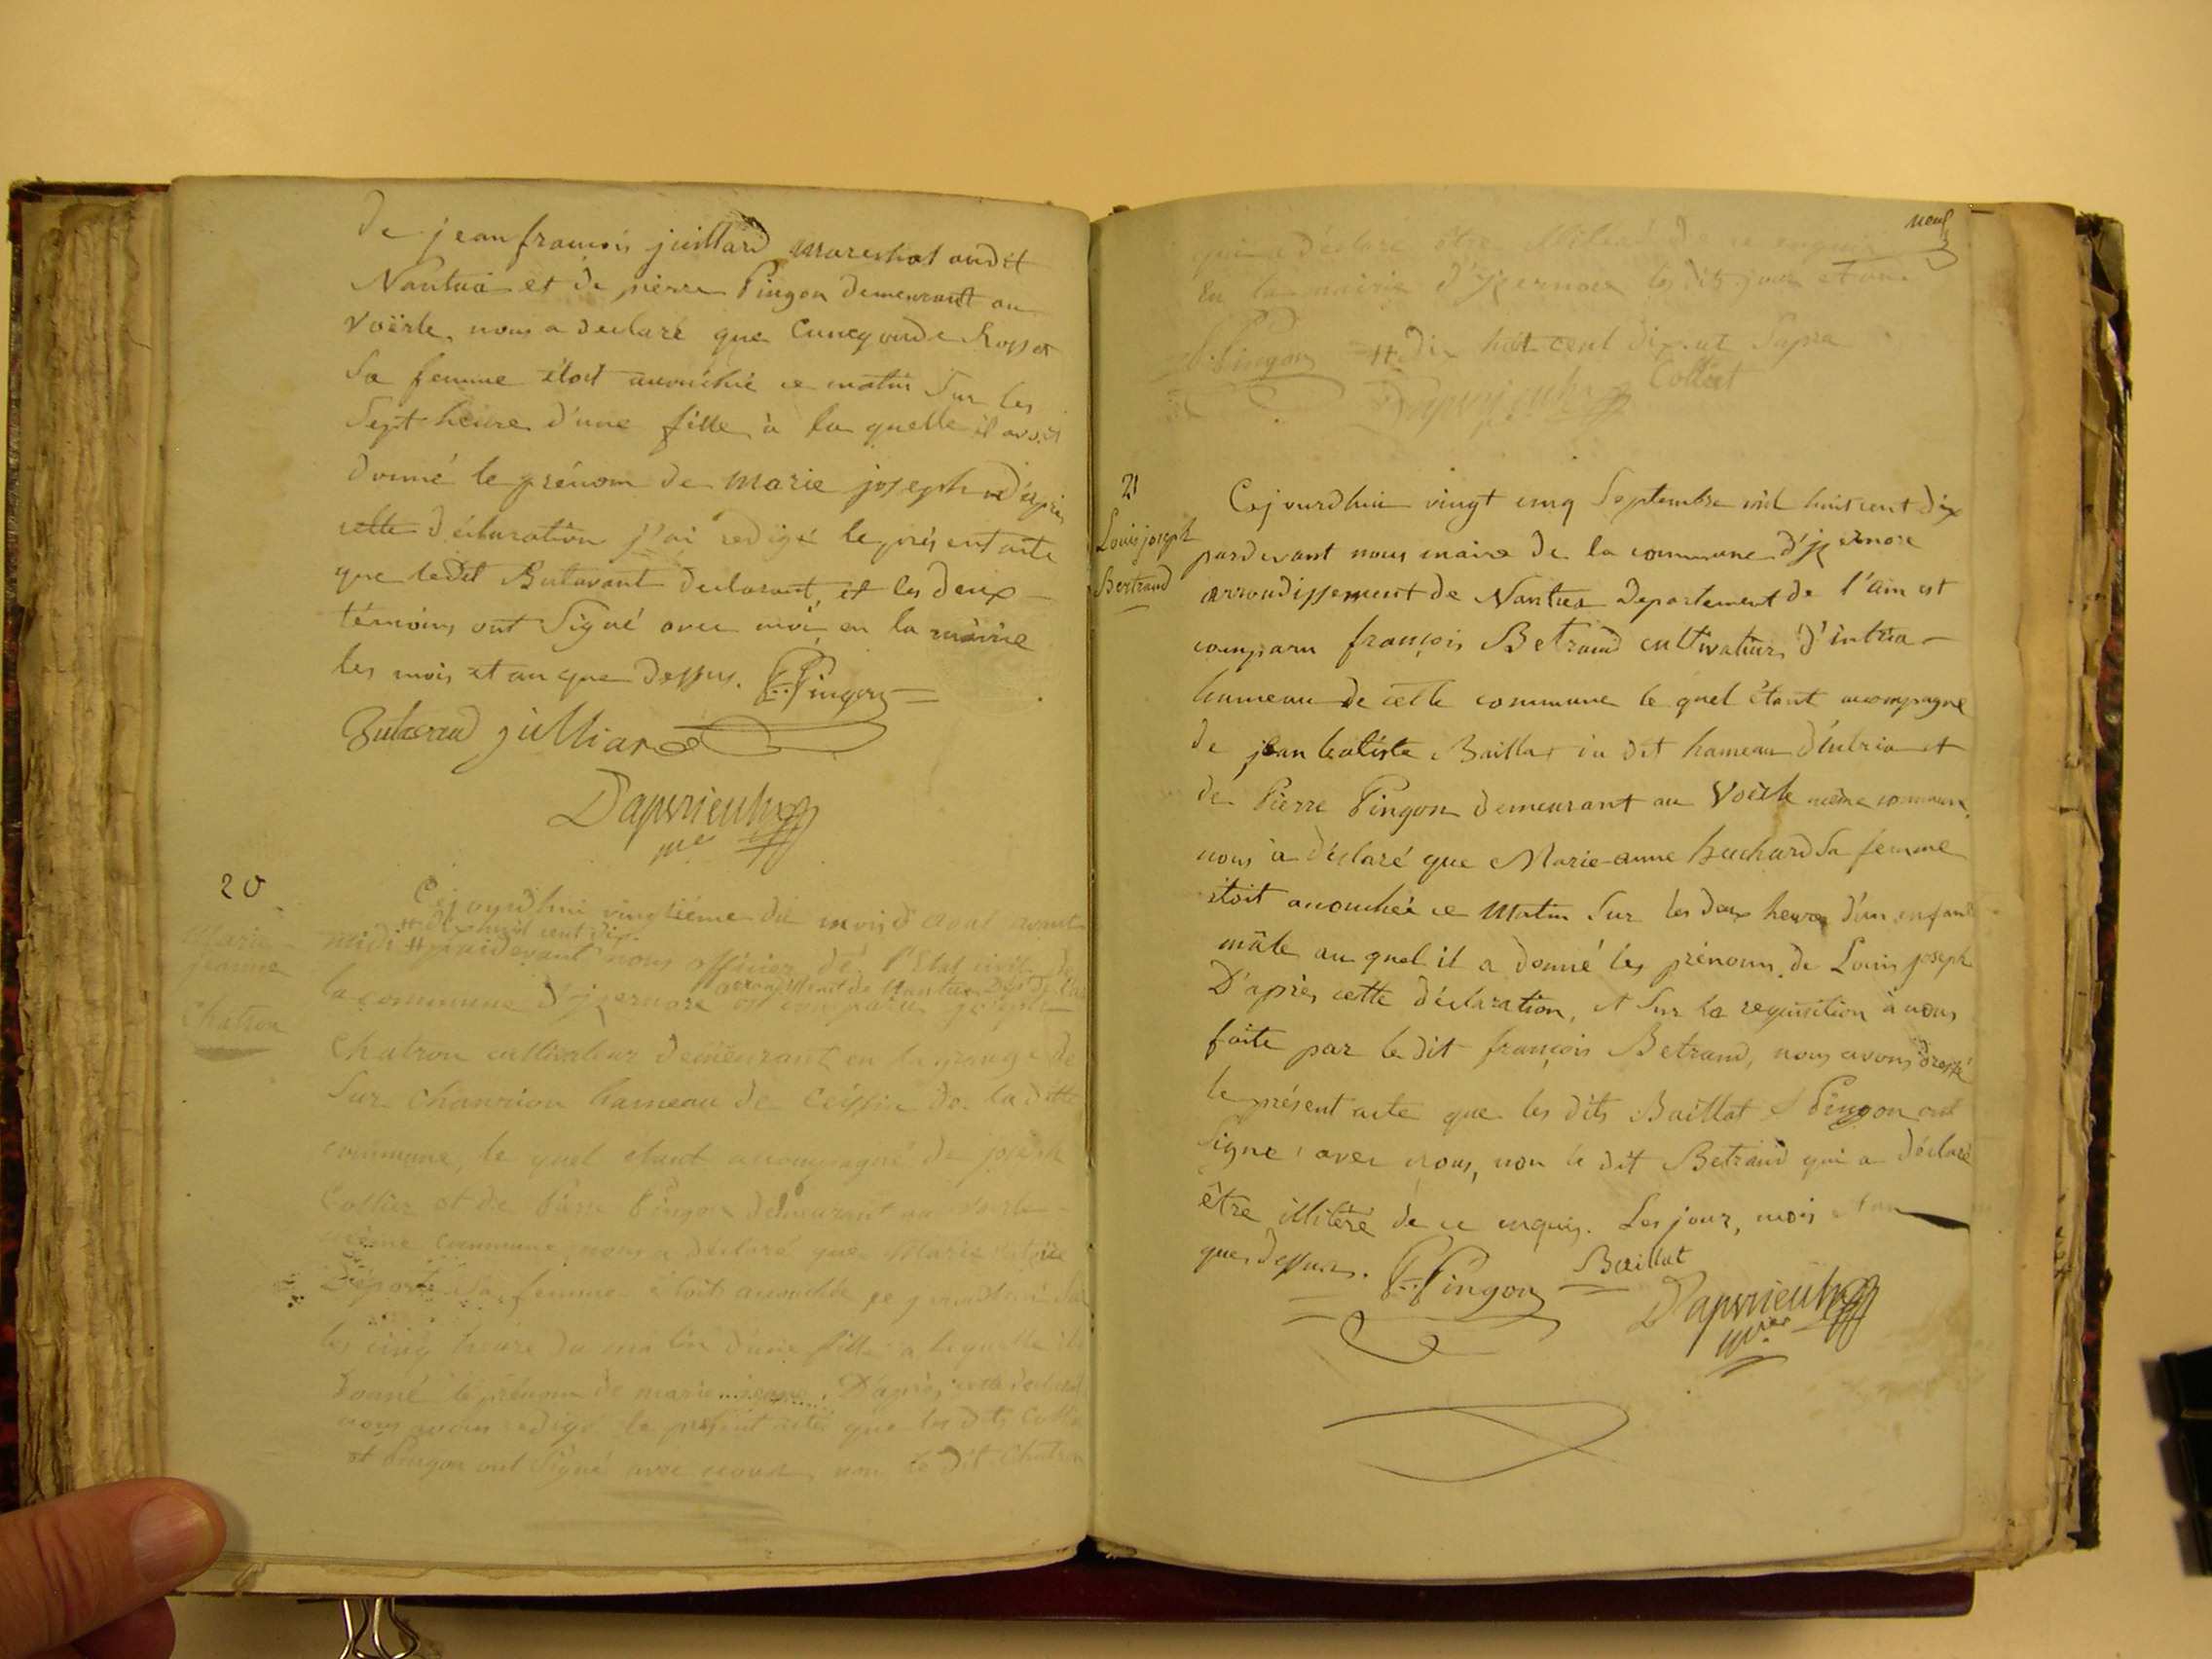 de jean francois juillard mareshal audit
Nantua et de pierre Pingon demeurant au
Voërle, nous a declaré que Cunegonde Rosset
Sa femme étoit acouchée ce matin Sur les
Sept heure d'une fille à la quelle il avoit
donné le prénom de marie joseph d'après
cette déclaration j'ai redigé le présent acte
que ledit Butavant declarant et les deux
témoins ont Signé avec moi, en la mairie
les mois et an que dessus. P. Pingon
julliard
20
Cejourdhui vingtiéme du mois d'aoul avant
dix huit cent dix
midi # pardevant nous officier de l'Etat civil de
arrondissement de Nantua
la commune d'jzernore est comparu joseph
Marie
jeanne
Chatron
Chatron cultivateur demeurant en la grange de
Sur Chamion hameau de Ceissia de la ditte
commune, le quel etant accompagné de joseph
Collier et de Pierre Pingon demeurant au Voerle
même commune, nous a déclaré que Marie
Sa femme étoit acouchée ce jourdhui Sur
les cinq heure du matin d'une fille a laquelle il
donné le prénom de marie jeanne. D'après cette
nous avons redigé le présent acte que les dits
et Pingon ont Signé avec nous, non le dit Chatron
neuf
qui a déclaré être illiteré de ce enquis
En la mairie d'jzernore les dits jour et an
P. Pingon # dix huit cent dix. ut Supra
21
Louis joseph
Bertrand
Cejourdhui vingt cinq Septembre mil huit cent dix
pardevant nous maire de la commune d'jzernore
arrondissement de Nantua Departement de l'ain est
comparu françois Betrand cultivateur d'intria
hameau de cette commune le quel étant acompagné
de jean batiste Baillat du dit hameau d'intria et
de Pierre Pingon demeurant au Voërle même commune
nous a déclaré que Marie-anne huchard Sa femme
étoit acouchée ce Matin Sur les deux heures d'un enfant
mâle au quel il a donné les prénoms de Louis joseph
D'après cette déclaration, et Sur la requisition à nous
faite par le dit françois Betrand, nous avons dressé
le présent acte que les dits Baillat et Pingon ont
Signé avec nous, non le dit Betrand qui a déclaré
être illitéré de ce enquis. Les jour, mois et an
que dessus. P. Pingon Baillat